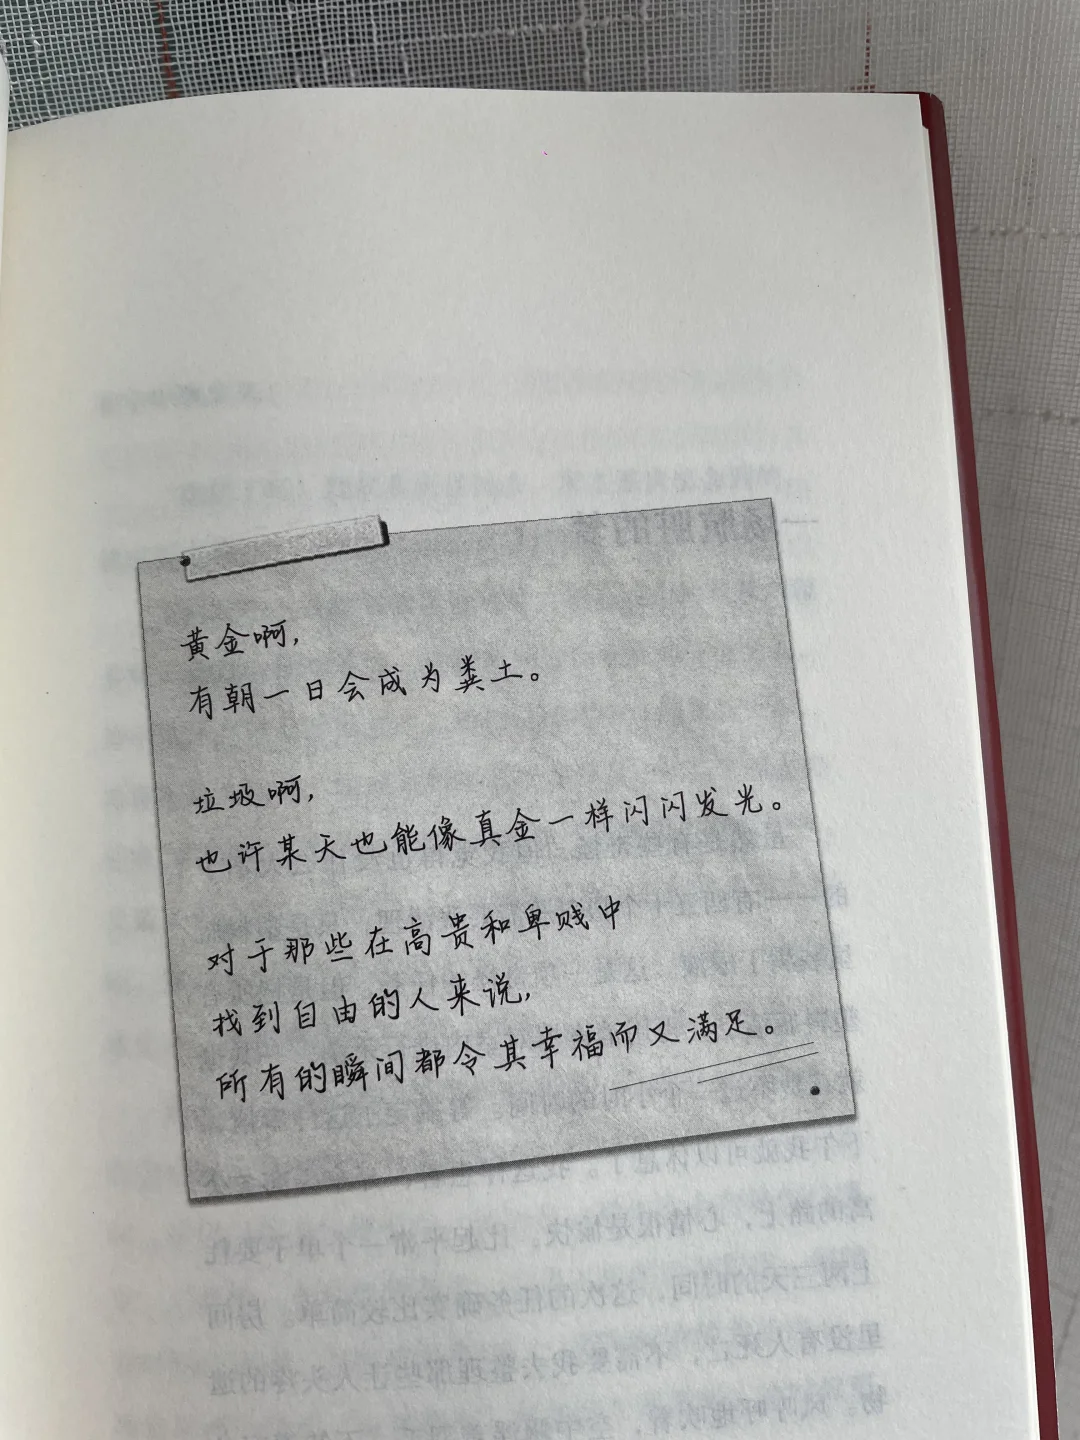 黄金啊,
有朝一日会成为粪土。
垃圾啊,
也许某天也能像真金一样闪闪发光。
对于那些在高贵和卑贱中
找到自由的人来说,
所有的瞬间都令其幸福而又满足。